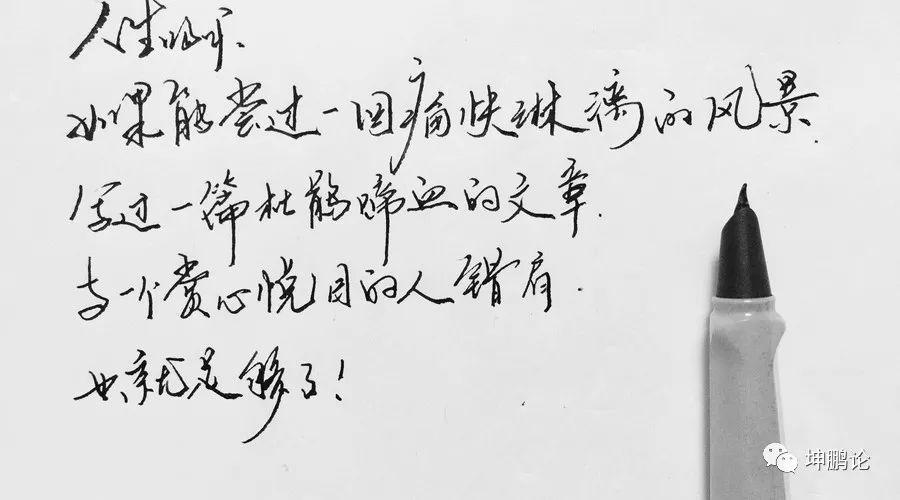 人生啊、
如果能尝过一回痛快淋漓的风景.
写过一篇杜鹃啼血的文章.
与一个赏心悦目的人错肩.
也就足够了!
坤鹏论